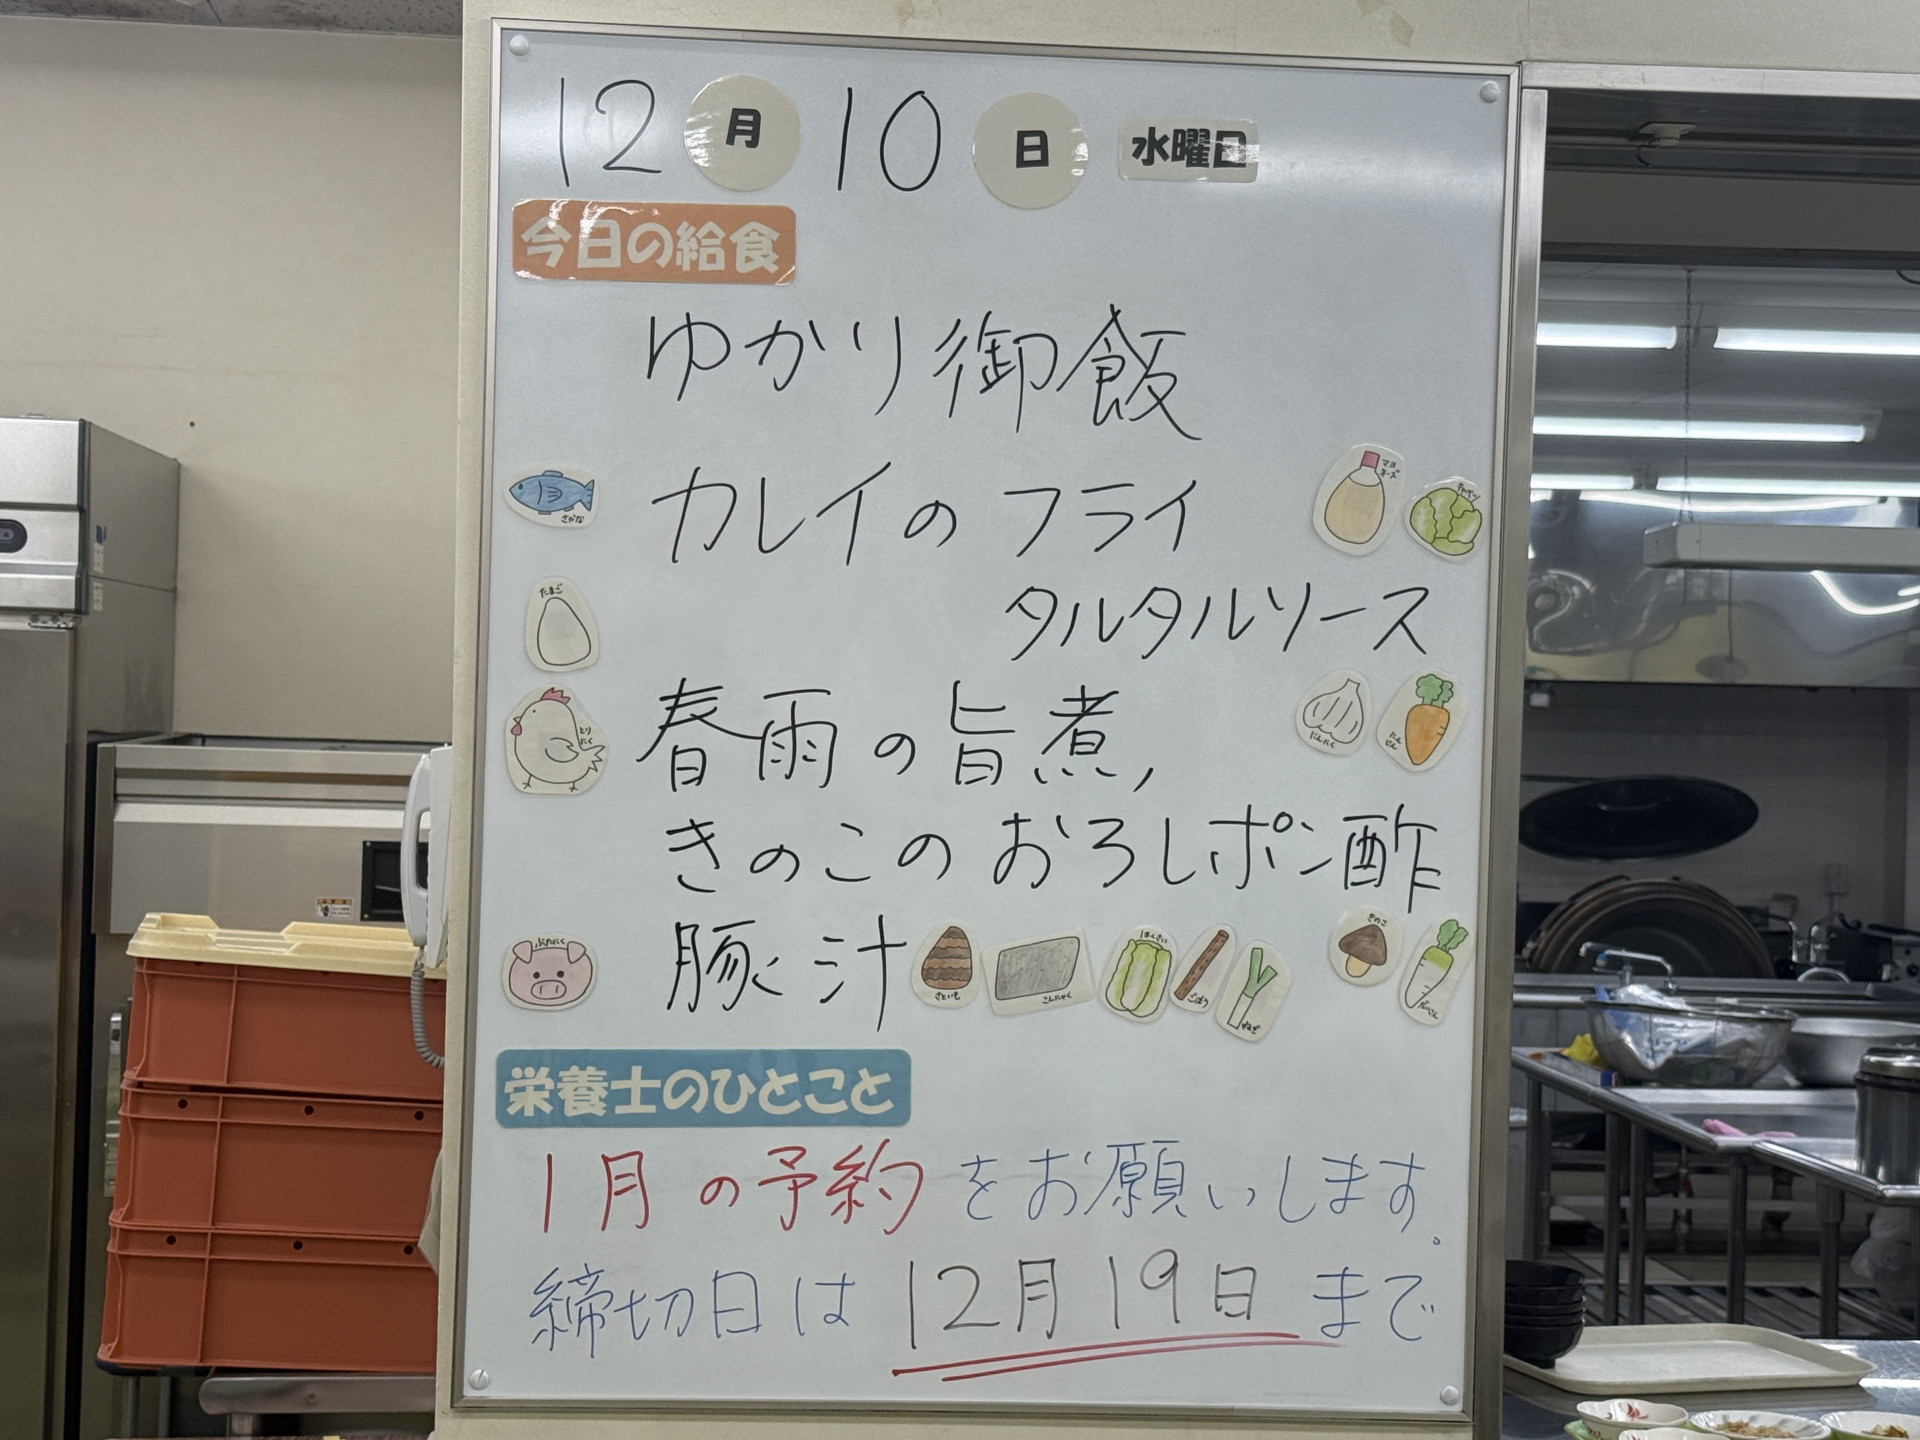 12月10日 水曜日
今日の給食
ゆかり御飯
カレイのフライ
マヨネーズ
キャベツ
さかな
タルタルソース
たまご
春雨の旨煮
とりにく
にんにく
にんじん
きのこのおろしポン酢
豚汁
ぶたにく
さといも
こんにゃく
はくさい
ごぼう
ねぎ
きのこ
だいこん
栄養士のひとこと
1月の予約をお願いします。
締切日は12月19日まで